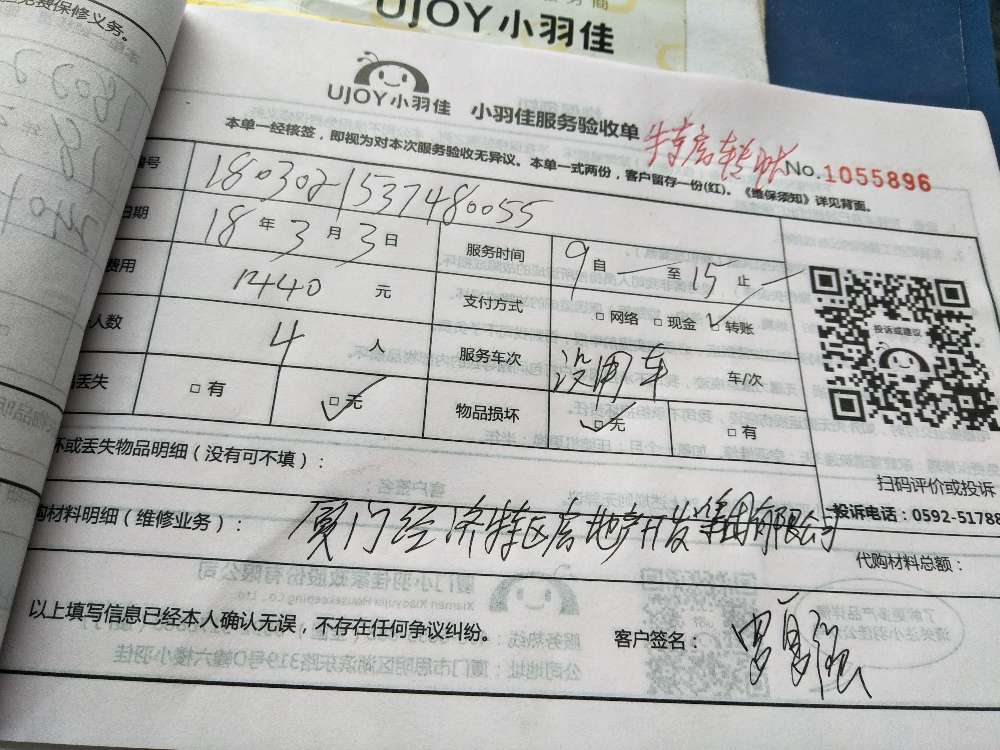 免费保修义务。
UJOY小羽佳
UJOY小羽佳 小羽佳服务验收单 特房转帐 No.1055896
本单一经核签，即视为对本次服务验收无异议。本单一式两份，客户留存一份(红)。《维保须知》详见背面。
编号 1803021537480055
日期 18年3月3日 服务时间 9自 至15止
费用 1440元 支付方式 □网络 □现金 ☑转账
人数 4人 服务车次 没用车 车/次
丢失 □有 ☑无 物品损坏 ☑无 □有
投诉或建议
扫码评价或投诉
坏或丢失物品明细（没有可不填）：
购材料明细（维修业务）： 厦门经济特区房地产开发集团有限公司
投诉电话：0592-51788
代购材料总额：
以上填写信息已经本人确认无误，不存在任何争议纠纷。 客户签名：